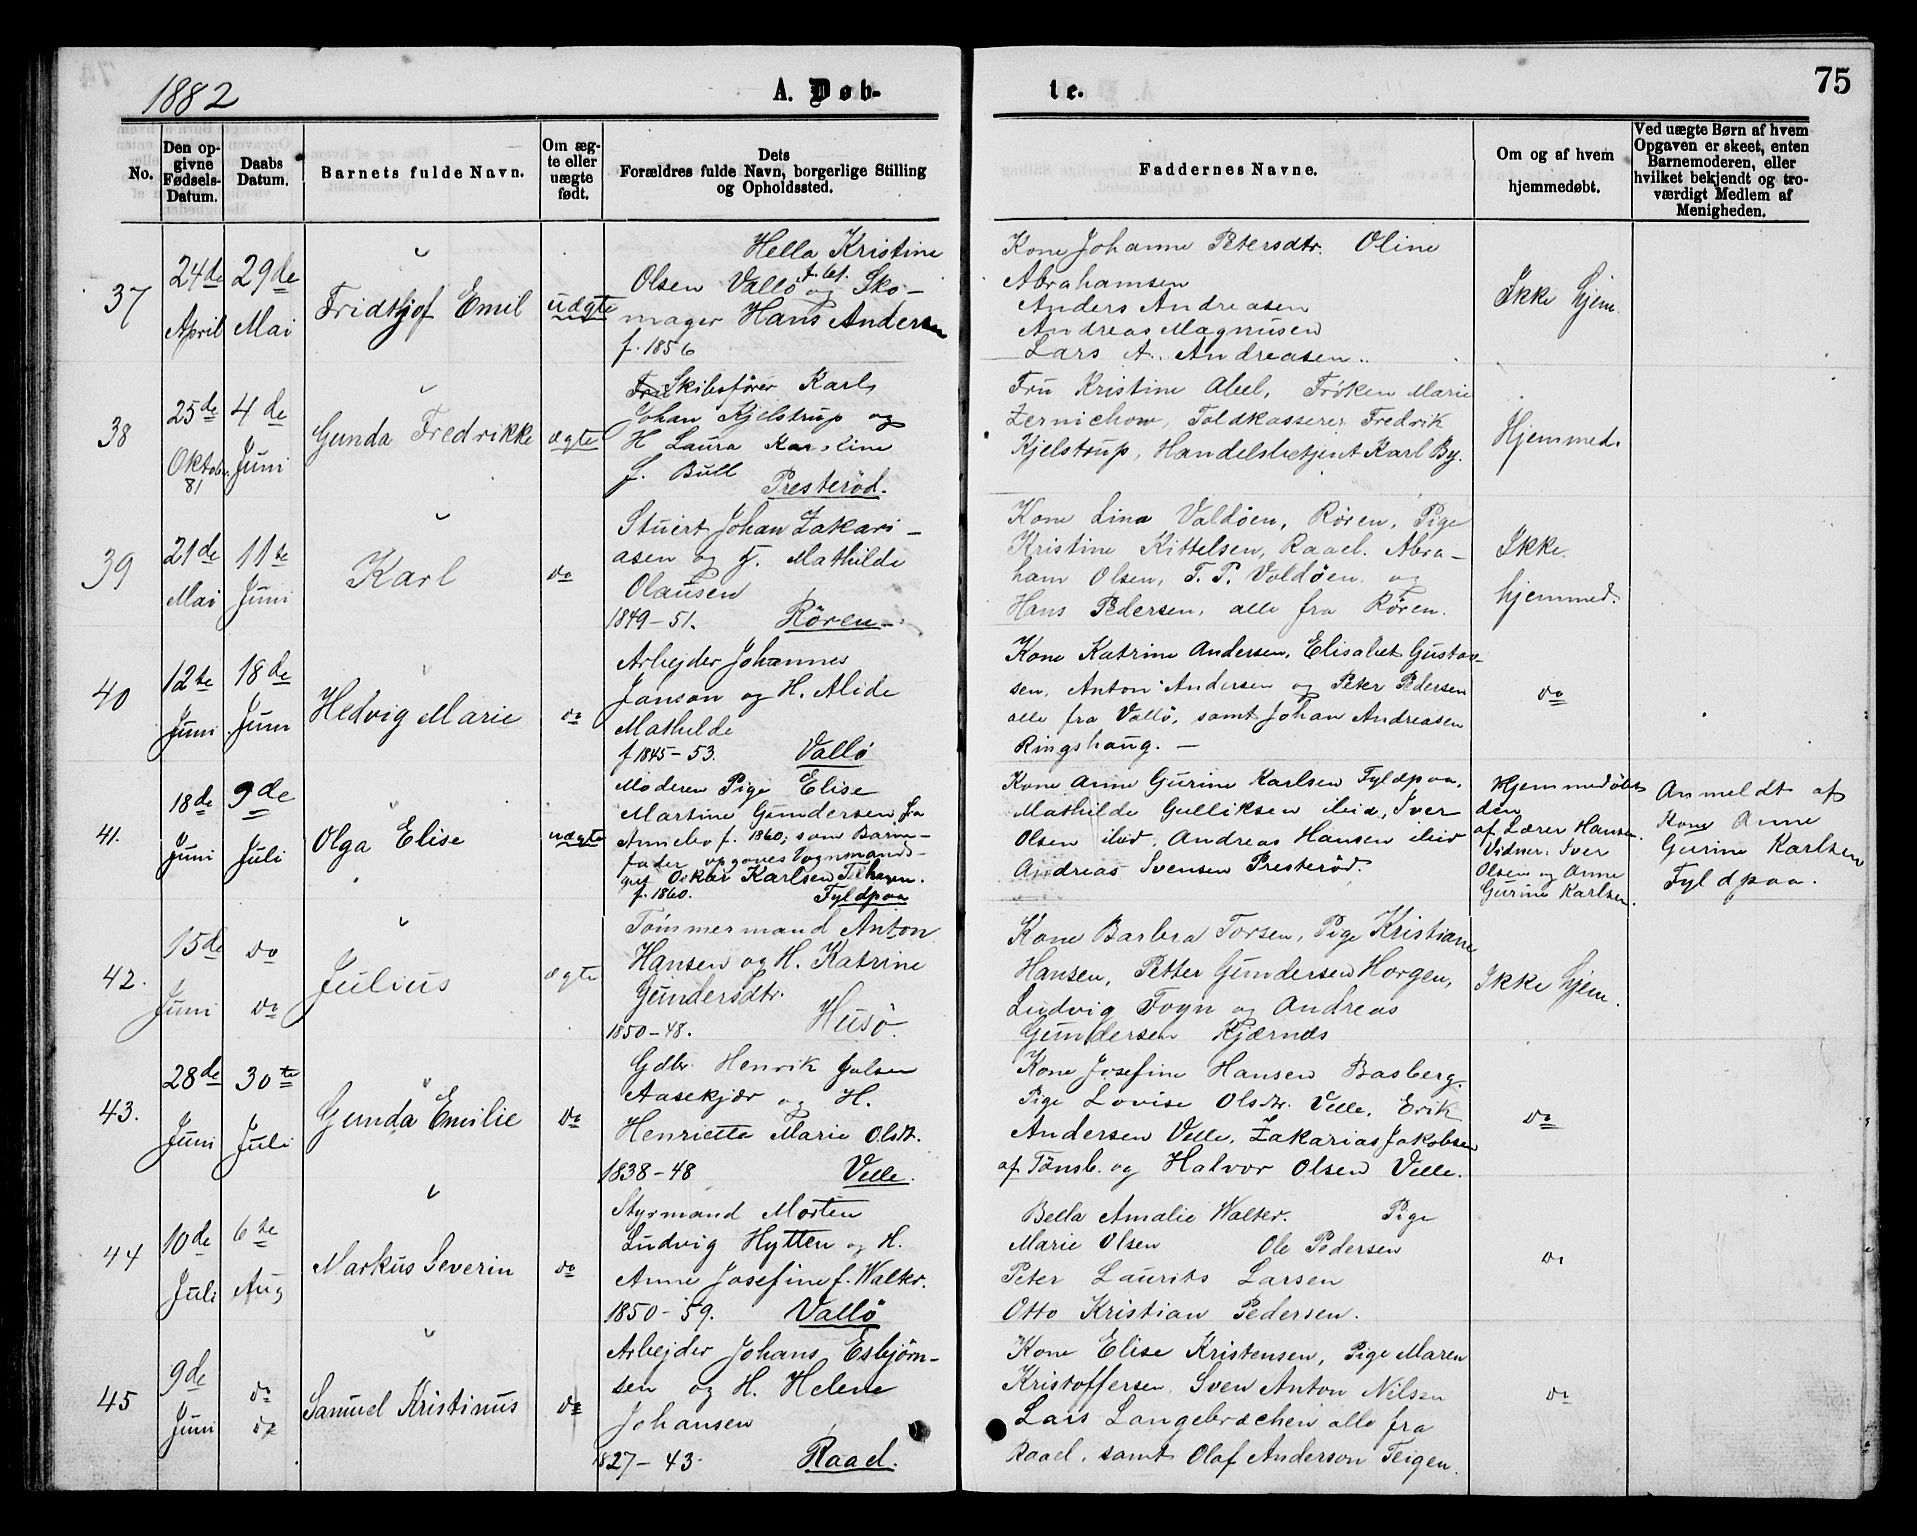 1882
A. Døb-
te.
75
No.
Den op-
givne
Fødsels-
Datum.
Daabs
Datum.
Barnets fulde Navn.
Om æg-
te eller
uægte
født.
Dets
Forældres fulde Navn, borgerlige Stilling
og Opholdssted.
Faddernes Navne.
Om og af hvem
hjemmedøbt.
Ved uægte Børn af hvem
Opgaven er skeet, enten
Barnemoderen, eller
hvilket bekjendt og tro-
værdigt Medlem af
Menigheden.
37
24de
April
29de
Mai
Fridthjof Emil
uægte
Hella Kristine
Olsen Vallø f. 61. og Sko-
mager Hans Andersen
f. 1856
Kone Johanne Petersdtr. Oline
Abrahamsen
Anders Andreasen
Andreas Magnusen
Lars A. Andreasen..
Ikke hjem.
38
25de
Oktober
81
4de
Juni
Gunda Fredrikke
ægte
Skibsfører Karl
Johan Kjelstrup og
H Laura Karoline
f. Bull
Presterød.
Fru Kristine Abel, Frøken Marie
Zernichow, Toldkasserer Fredrik
Kjelstrup, Handelsbetjent Karl By.
Hjemmed.
39
21de
Mai
11te
Juni
Karl
do
Stuert Johan Zakari-
asen og H. Mathilde
Olausen
1849-51. Røren.
Kone Lina Valdøen, Røren, Pige
Kristine Kittelsen, Raael. Abra-
ham Olsen, T. P. Valdøen og
Hans Pedersen, alle fra Røren.
Ikke
hjemmed.
40
12te
Juni
18de
Juni
Hedvig Marie
do
Arbejder Johannes
Janson og H. Alide
Mathilde
f 1845-53. Vallø
Kone Katrine Andersen, Elisabet Gustav-
sen, Anton Andersen og Peter Pedersen
alle fra Vallø, samt Johan Andreasen
Ringshaug. -
do
41.
18de
Juni
9de
Juli
Olga Elise
uægte
Moderen Pige Elise
Martine Gundersen fra
Annebo f. 1860; som Barne-
fader opgaves Vognmands-
gut Oskar Karlsen
f. 1860. Fyldpaa
Kone Anne Gurine Karlsen Fyldpaa,
Mathilde Gulliksen ibid, Iver
Olsen ibid, Andreas Hansen ibid
Andreas Svensen Presterød.
Hjemmedøbt
den
af Lærer Hansen.
Vidner: Iver
Olsen og Anne
Gurine Karlsen.
Anmeldt af
Kone Anne
Gurine Karlsen
Fyldpaa.
42.
15de
Juni
do
do
Julius
ægte
Tømmermand Anton
Hansen og H. Katrine
Gundersdtr.
1850-48. Husø.
Kone Barbra Torsen, Pige Kristiane
Hansen, Petter Gundersen Horgen,
Ludvig Fogn og Andreas
Gundersen Kjærnæs
Ikke hjem.
43.
28de
Juni
30te
Juli
Gunda Emilie
do
Gdbr. Henrik Julsen
Aasekjær og H.
Henriette Marie Olsdtr.
1838-48 Velle.
Kone Josefine Hansen Basberg.
Pige Lovise Olsdtr. Velle, Erik
Andersen Velle, Zakarias Jakobsen
af Tønsb. og Halvor Olsen Velle.
do
44
10de
Juli
6te
Aug
Markus Severin
do
Styrmand Morten
Ludvig Hytten og H.
Anne Josefine f. Walter.
1850-59. Vallø
Bella Amalie Walter. Pige
Marie Olsen Ole Pedersen
Peter Laurits Larsen
Otto Kristian Pedersen.
do
45
9de
Juni
do
do
Samuel Kristinus
do
Arbejder Johans Esbjørn-
sen og H. Helene
Johansen
1827-43. Raael.
Kone Elise Kristensen, Pige Maren
Kristoffersen, Sven Anton Nilsen
Lars Langebrækken alle fra
Raael, samt Olaf Anderson Teigen.
do